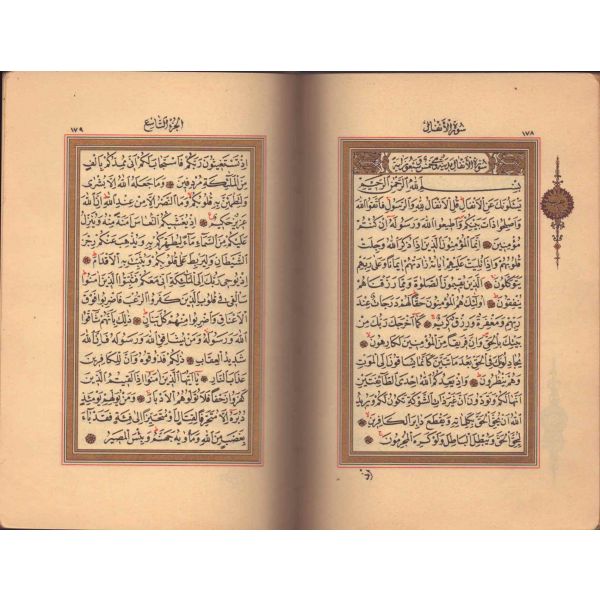 سورة الأنفال
١٧٨
سورة الأنفال مدنية وهي خمس وسبعون اية
بِسْمِ اللهِ الرَّحْمٰنِ الرَّحِيمِ
يَسْئَلُونَكَ عَنِ الْاَنْفَالِ قُلِ الْاَنْفَالُ لِلّٰهِ وَالرَّسُولِ فَاتَّقُوا اللهَ
وَاَصْلِحُوا ذَاتَ بَيْنِكُمْ وَاَطِيعُوا اللهَ وَرَسُولَهُ اِنْ كُنْتُمْ
مُؤْمِنِينَ اِنَّمَا الْمُؤْمِنُونَ الَّذِينَ اِذَا ذُكِرَ اللهُ وَجِلَتْ
قُلُوبُهُمْ وَاِذَا تُلِيَتْ عَلَيْهِمْ اٰيَاتُهُ زَادَتْهُمْ اِيمَانًا وَعَلٰى رَبِّهِمْ
يَتَوَكَّلُونَ الَّذِينَ يُقِيمُونَ الصَّلٰوةَ وَمِمَّا رَزَقْنَاهُمْ
يُنْفِقُونَ اُولٰئِكَ هُمُ الْمُؤْمِنُونَ حَقًّا لَهُمْ دَرَجَاتٌ عِنْدَ
رَبِّهِمْ وَمَغْفِرَةٌ وَرِزْقٌ كَرِيمٌ كَمَا اَخْرَجَكَ رَبُّكَ مِنْ
بَيْتِكَ بِالْحَقِّ وَاِنَّ فَرِيقًا مِنَ الْمُؤْمِنِينَ لَكَارِهُونَ
يُجَادِلُونَكَ فِي الْحَقِّ بَعْدَ مَا تَبَيَّنَ كَاَنَّمَا يُسَاقُونَ اِلَى الْمَوْتِ
وَهُمْ يَنْظُرُونَ وَاِذْ يَعِدُكُمُ اللهُ اِحْدَى الطَّائِفَتَيْنِ
اَنَّهَا لَكُمْ وَتَوَدُّونَ اَنَّ غَيْرَ ذَاتِ الشَّوْكَةِ تَكُونُ لَكُمْ وَيُرِيدُ
اللهُ اَنْ يُحِقَّ الْحَقَّ بِكَلِمَاتِهِ وَيَقْطَعَ دَابِرَ الْكَافِرِينَ
لِيُحِقَّ الْحَقَّ وَيُبْطِلَ الْبَاطِلَ وَلَوْ كَرِهَ الْمُجْرِمُونَ
اذ
الجزء التاسع
١٧٩
اِذْ تَسْتَغِيثُونَ رَبَّكُمْ فَاسْتَجَابَ لَكُمْ اَنِّي مُمِدُّكُمْ بِاَلْفٍ
مِنَ الْمَلٰئِكَةِ مُرْدِفِينَ وَمَا جَعَلَهُ اللهُ اِلَّا بُشْرٰى
وَلِتَطْمَئِنَّ بِهِ قُلُوبُكُمْ وَمَا النَّصْرُ اِلَّا مِنْ عِنْدِ اللهِ اِنَّ اللهَ
عَزِيزٌ حَكِيمٌ اِذْ يُغَشِّيكُمُ النُّعَاسَ اَمَنَةً مِنْهُ وَيُنَزِّلُ
عَلَيْكُمْ مِنَ السَّمَاءِ مَاءً لِيُطَهِّرَكُمْ بِهِ وَيُذْهِبَ عَنْكُمْ رِجْزَ
الشَّيْطَانِ وَلِيَرْبِطَ عَلٰى قُلُوبِكُمْ وَيُثَبِّتَ بِهِ الْاَقْدَامَ
اِذْ يُوحِي رَبُّكَ اِلَى الْمَلٰئِكَةِ اَنِّي مَعَكُمْ فَثَبِّتُوا الَّذِينَ اٰمَنُوا
سَاُلْقِي فِي قُلُوبِ الَّذِينَ كَفَرُوا الرُّعْبَ فَاضْرِبُوا فَوْقَ
الْاَعْنَاقِ وَاضْرِبُوا مِنْهُمْ كُلَّ بَنَانٍ ذٰلِكَ بِاَنَّهُمْ شَاقُّوا
اللهَ وَرَسُولَهُ وَمَنْ يُشَاقِقِ اللهَ وَرَسُولَهُ فَاِنَّ اللهَ
شَدِيدُ الْعِقَابِ ذٰلِكُمْ فَذُوقُوهُ وَاَنَّ لِلْكَافِرِينَ
عَذَابَ النَّارِ يَا اَيُّهَا الَّذِينَ اٰمَنُوا اِذَا لَقِيتُمُ الَّذِينَ
كَفَرُوا زَحْفًا فَلَا تُوَلُّوهُمُ الْاَدْبَارَ وَمَنْ يُوَلِّهِمْ يَوْمَئِذٍ
دُبُرَهُ اِلَّا مُتَحَرِّفًا لِقِتَالٍ اَوْ مُتَحَيِّزًا اِلٰى فِئَةٍ فَقَدْ بَاءَ
بِغَضَبٍ مِنَ اللهِ وَمَأْوٰيهُ جَهَنَّمُ وَبِئْسَ الْمَصِيرُ